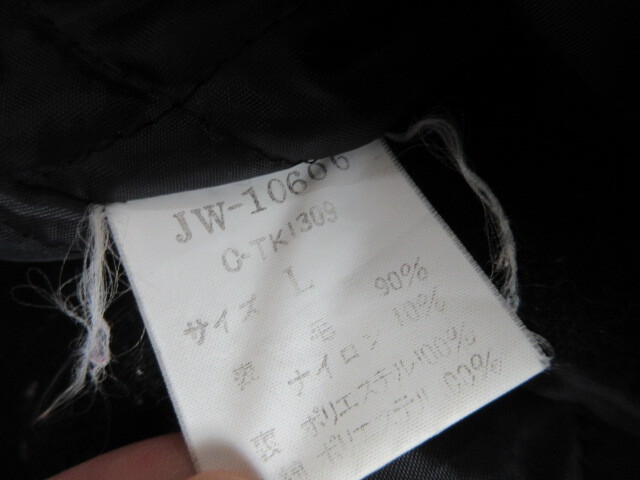 JW-10686
O-TK1309
サイズ L
表 毛 90%
ナイロン 10%
裏 ポリエステル100%
綿 ポリエステル 100%